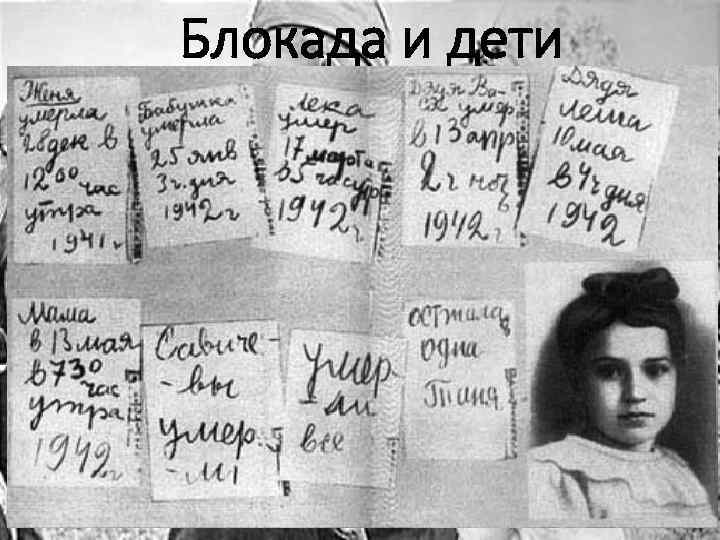 Блокада и дети
Женя
умерла
28 дек в
12 00 час
утра
1941 г
Бабушка
умерла
25 янв
3 ч. дня
1942 г
Лека
умер
17 марта
в 5 час утр
1942 г
Дядя Ва-
ся умер
в 13 апр
2 ч ноч
1942 г
Дядя
Леша
10 мая
в 4 ч дня
1942
Мама
в 13 мая
в 7 30
час
утра
1942 г
Савиче-
-вы
умер-
-ли
умер-
-ли
все
осталась
одна
Таня